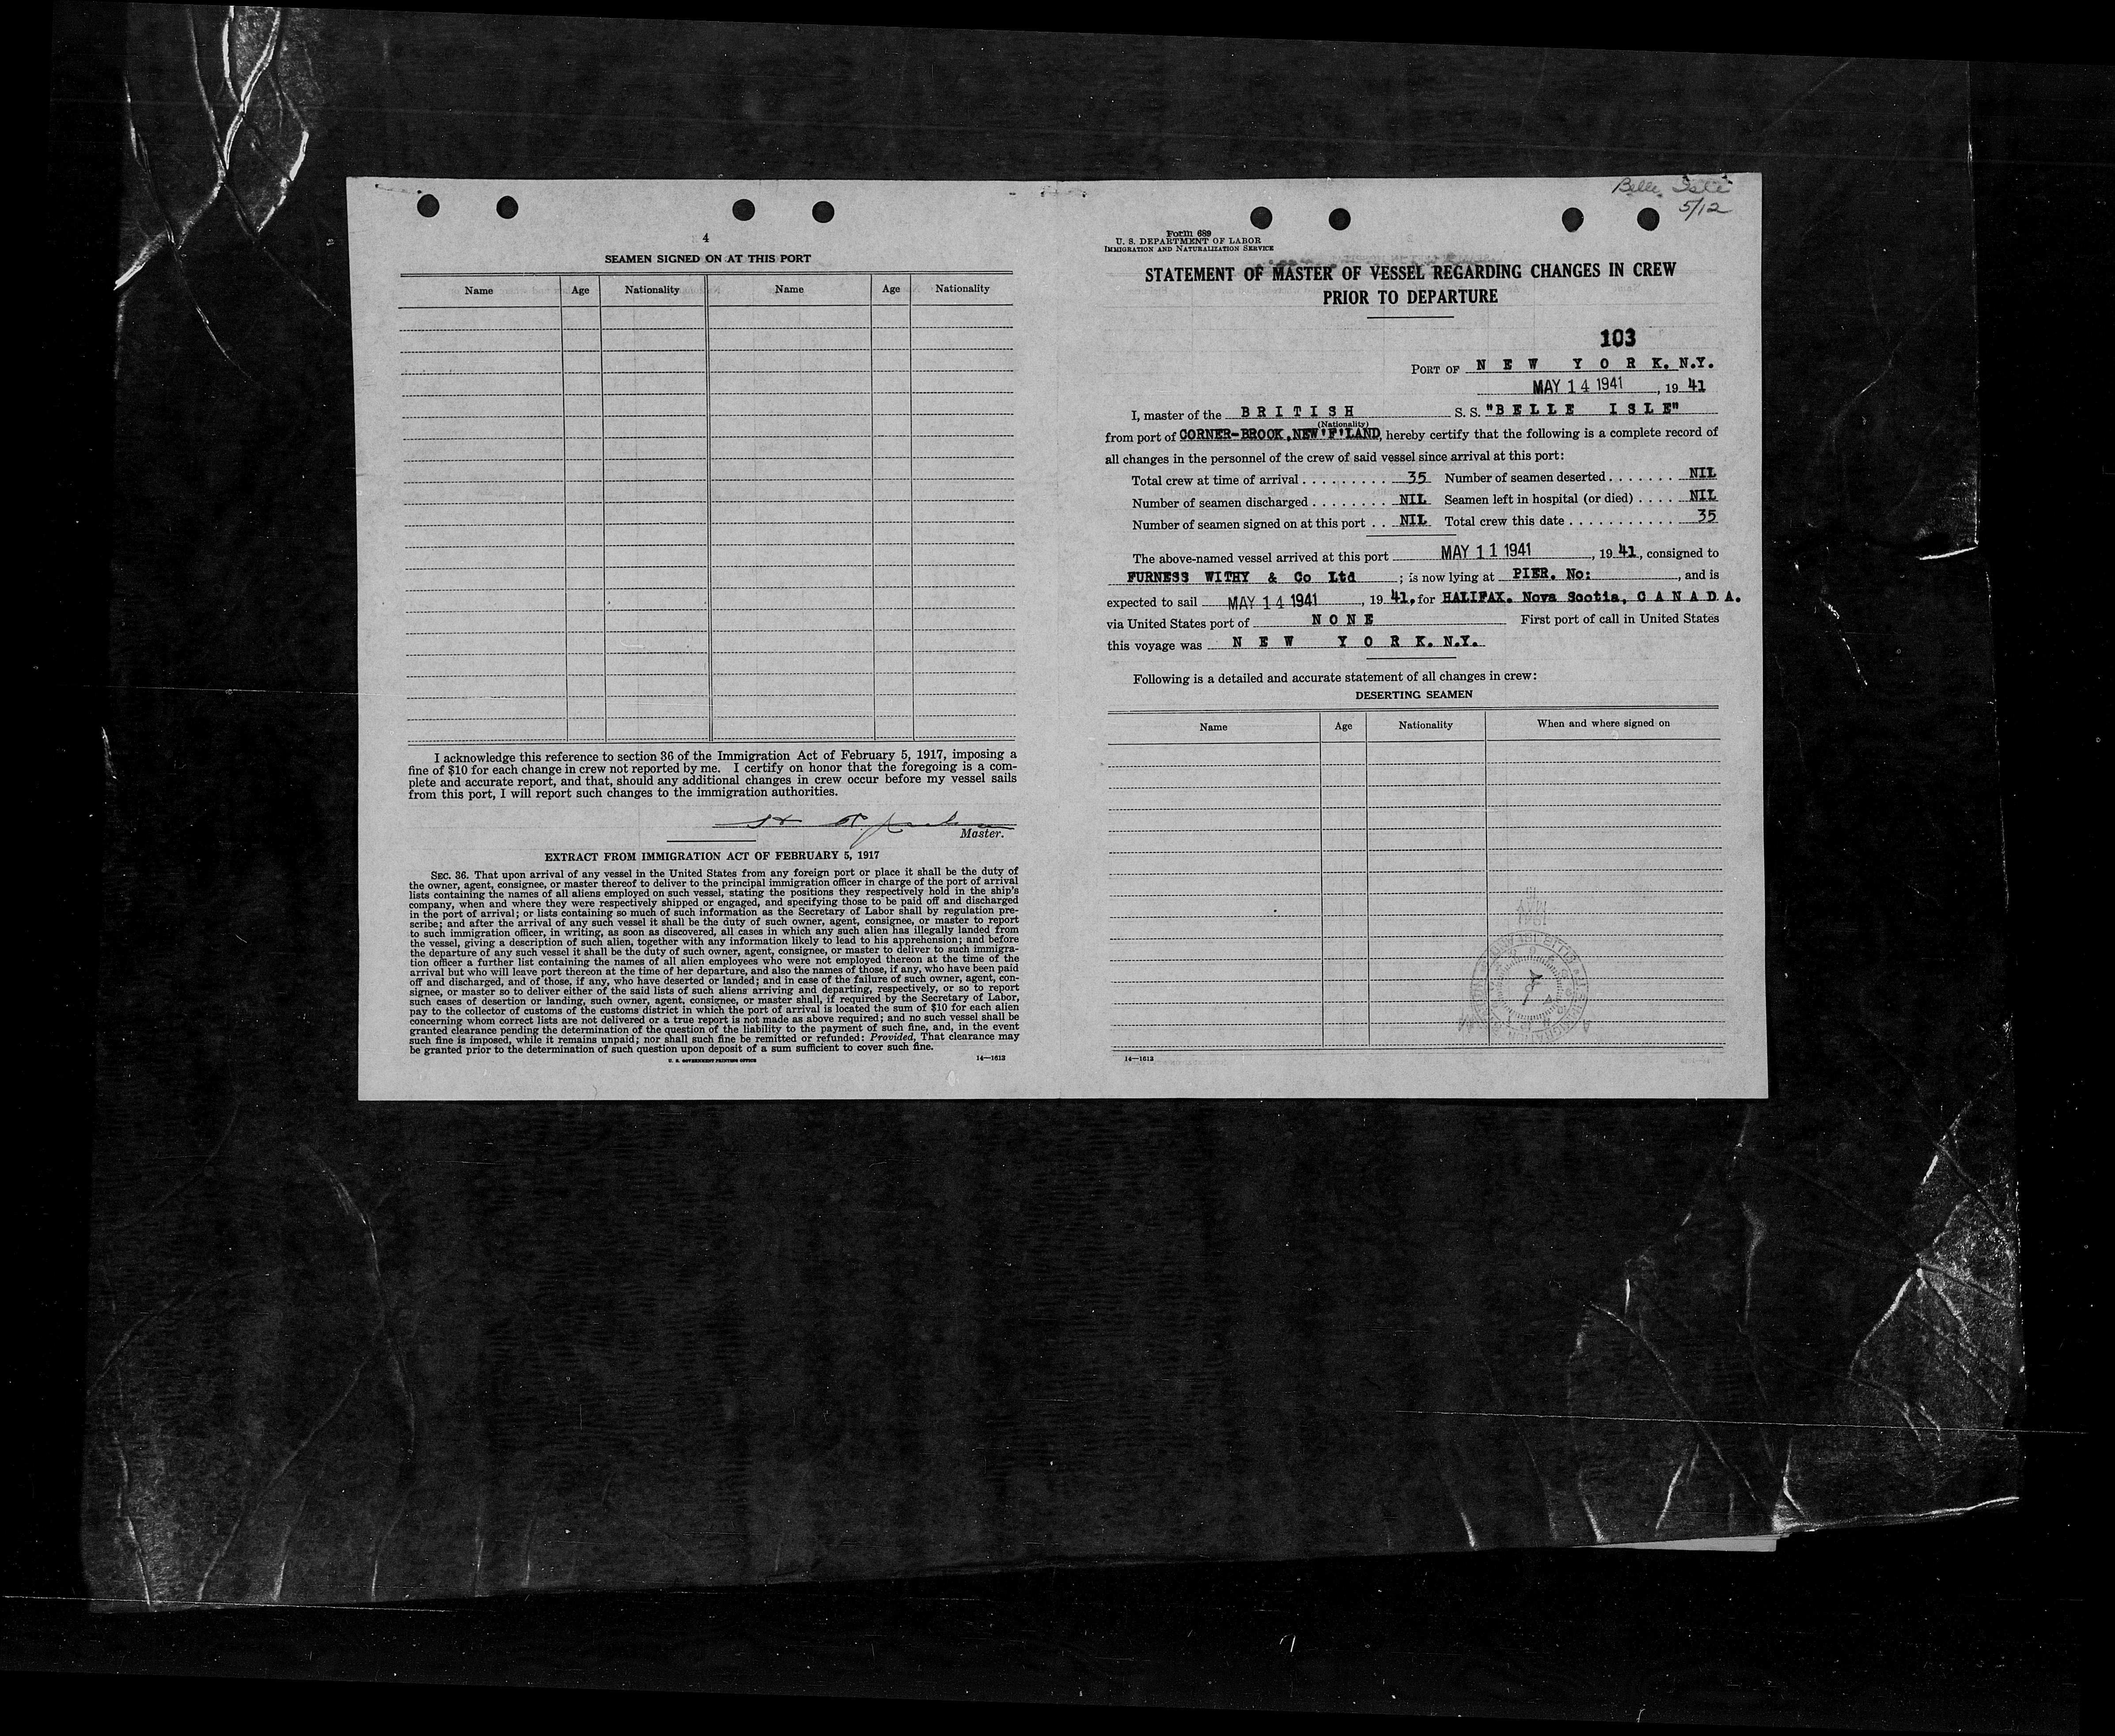 4
SEAMEN SIGNED ON AT THIS PORT
Name Age Nationality Name Age Nationality
I acknowledge this reference to section 36 of the Immigration Act of February 5, 1917, imposing a
fine of $10 for each change in crew not reported by me. I certify on honor that the foregoing is a com-
plete and accurate report, and that, should any additional changes in crew occur before my vessel sails
from this port, I will report such changes to the immigration authorities.
Master.
EXTRACT FROM IMMIGRATION ACT OF FEBRUARY 5, 1917
SEC. 36. That upon arrival of any vessel in the United States from any foreign port or place it shall be the duty of
the owner, agent, consignee, or master thereof to deliver to the principal immigration officer in charge of the port of arrival
lists containing the names of all aliens employed on such vessel, stating the positions they respectively hold in the ship's
company, when and where they were respectively shipped or engaged, and specifying those to be paid off and discharged
in the port of arrival; or lists containing so much of such information as the Secretary of Labor shall by regulation pre-
scribe; and after the arrival of any such vessel it shall be the duty of such owner, agent, consignee, or master to report
to such immigration officer, in writing, as soon as discovered, all cases in which any such alien has illegally landed from
the vessel, giving a description of such alien, together with any information likely to lead to his apprehension; and before
the departure of any such vessel it shall be the duty of such owner, agent, consignee, or master to deliver to such immigra-
tion officer a further list containing the names of all alien employees who were not employed thereon at the time of the
arrival but who will leave port thereon at the time of her departure, and also the names of those, if any, who have been paid
off and discharged, and of those, if any, who have deserted or landed; and in case of the failure of such owner, agent, con-
signee, or master so to deliver either of the said lists of such aliens arriving and departing, respectively, or so to report
such cases of desertion or landing, such owner, agent, consignee, or master shall, if required by the Secretary of Labor,
pay to the collector of customs of the customs district in which the port of arrival is located the sum of $10 for each alien
concerning whom correct lists are not delivered or a true report is not made as above required; and no such vessel shall be
granted clearance pending the determination of the question of the liability to the payment of such fine, and, in the event
such fine is imposed, while it remains unpaid; nor shall such fine be remitted or refunded: Provided, That clearance may
be granted prior to the determination of such question upon deposit of a sum sufficient to cover such fine.
U. S. GOVERNMENT PRINTING OFFICE 14—1613
Belle Isle
5/12
Form 689
U. S. DEPARTMENT OF LABOR
IMMIGRATION AND NATURALIZATION SERVICE
STATEMENT OF MASTER OF VESSEL REGARDING CHANGES IN CREW
PRIOR TO DEPARTURE
103
PORT OF N E W Y O R K. N.Y.
MAY 14 1941, 19 41
I, master of the B R I T I S H S. S. "B E L L E I S L E"
(Nationality)
from port of CORNER-BROOK.NEW'F'LAND, hereby certify that the following is a complete record of
all changes in the personnel of the crew of said vessel since arrival at this port:
Total crew at time of arrival . . . . . . . . . 35 Number of seamen deserted . . . . . . . NIL
Number of seamen discharged . . . . . . . . NIL Seamen left in hospital (or died) . . . . NIL
Number of seamen signed on at this port . . NIL Total crew this date . . . . . . . . . . . . 35
The above-named vessel arrived at this port MAY 11 1941, 19 41, consigned to
FURNESS WITHY & Co Ltd ; is now lying at PIER. No: , and is
expected to sail MAY 14 1941, 19 41, for HALIFAX. Nova Scotia, C A N A D A.
via United States port of N O N E First port of call in United States
this voyage was N E W Y O R K. N.Y.
Following is a detailed and accurate statement of all changes in crew:
DESERTING SEAMEN
Name Age Nationality When and where signed on
14—1613